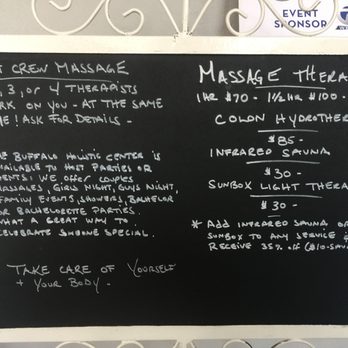 EVENT
SPONSOR
CREW MASSAGE
3, OR 4 THERAPISTS
ON YOU - AT THE SAME
! ASK FOR DETAILS -
BUFFALO HOLISTIC CENTER IS
AVAILABLE TO HOST PARTIES OR
WE OFFER COUPLES
GIRLS NIGHT, GUYS NIGHT,
FAMILY EVENTS, SHOWERS, BACHELOR
OR BACHELORETTE PARTIES.
WHAT A GREAT WAY TO
CELEBRATE SOMEONE SPECIAL.
TAKE CARE OF YOURSELF
+ YOUR BODY -
MASSAGE THERA
1 HR $70 - 1 1/2 HR $100 -
COLON HYDROTHER
$85 -
INFRARED SAUNA
$30 -
SUNBOX LIGHT THERA
$30 -
* ADD INFRARED SAUNA OR
SUNBOX TO ANY SERVICE
RECEIVE 35% OFF ($10-SAV